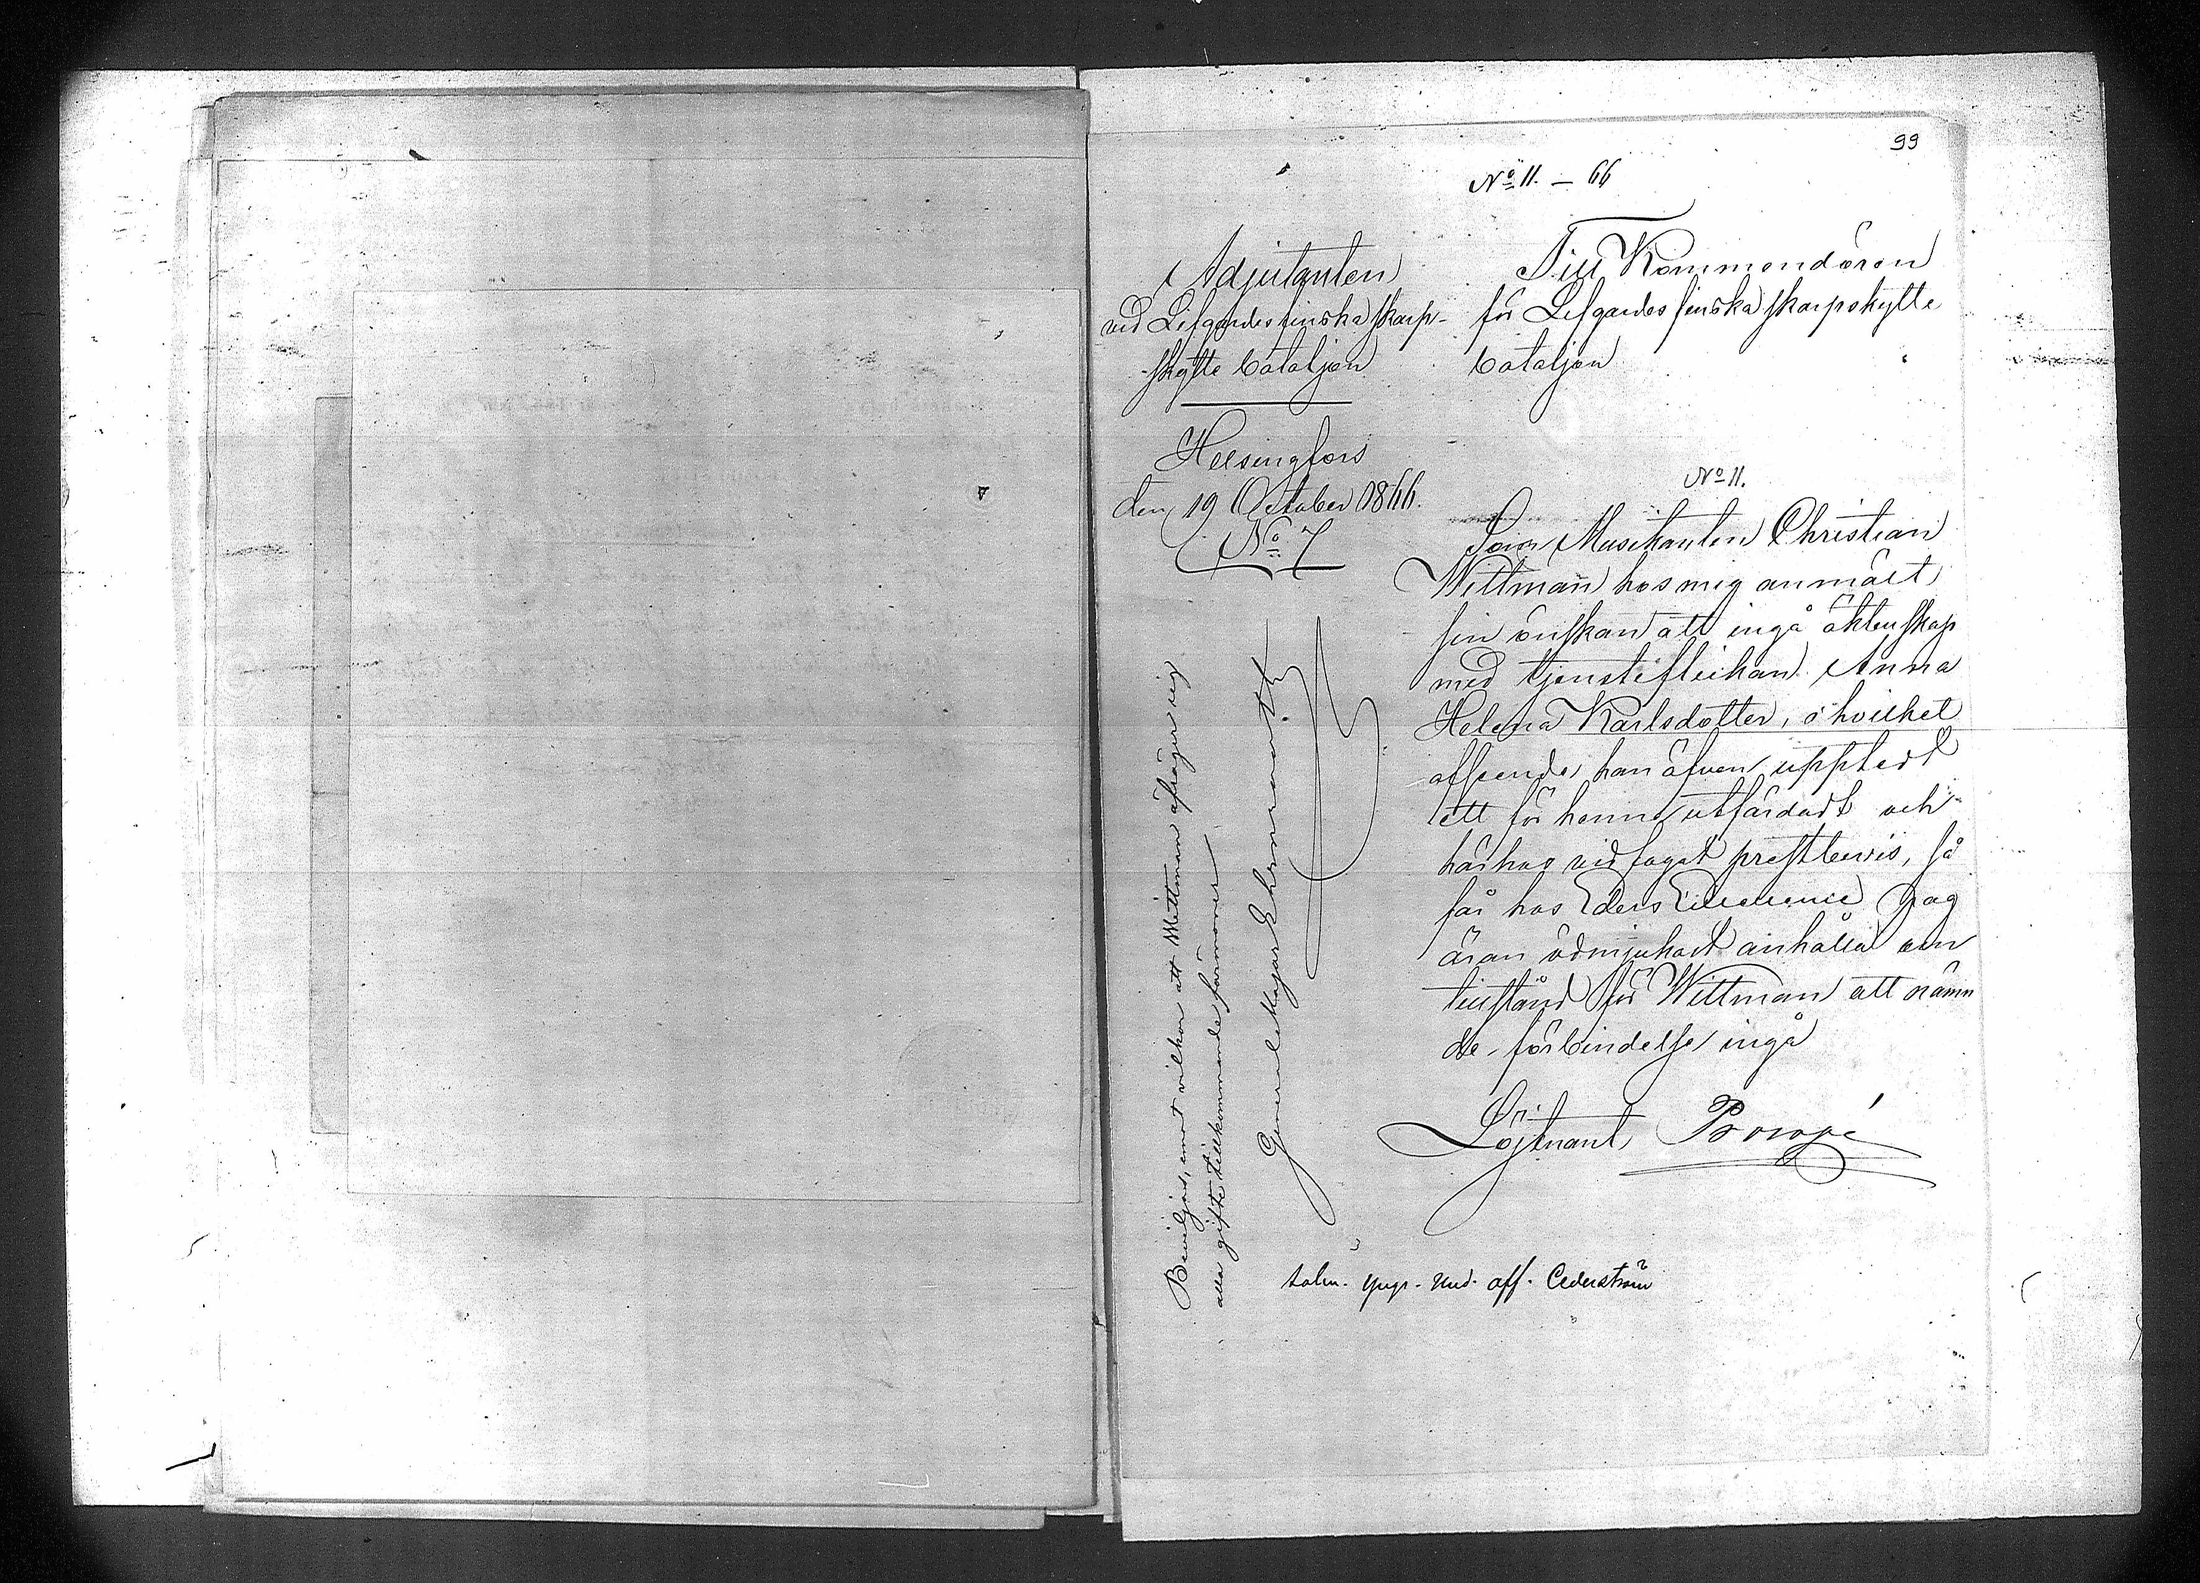 99
No 11. — 66
Adjutanten
vid Lifgardes finska skarp-
skytte bataljon
Helsingfors
den 19 October 1866.
No 7
Till Kommendören
för Lifgardes finska skarpskytte
bataljon
No 11.
Som Musikanten Christian
Wittman hos mig anmält
sin önskan att ingå äktenskap
med tjensteflickan Anna
Helena Karlsdotter, i hvilket
afseende han äfven uppledt
ett för henne utfärdadt och
härhos vidfogat prestbevis, så
får hos Eders Excellence jag
äran ödmjukast anhålla om
tillstånd för Wittman att nämn
de förbindelse ingå
Löjtnant Procopé
Beviljas, emot vilkor att Wittman afsäger sig
alla gifte tillkommande förmoner
General Major Ehrnrooth
und. off. Cederström